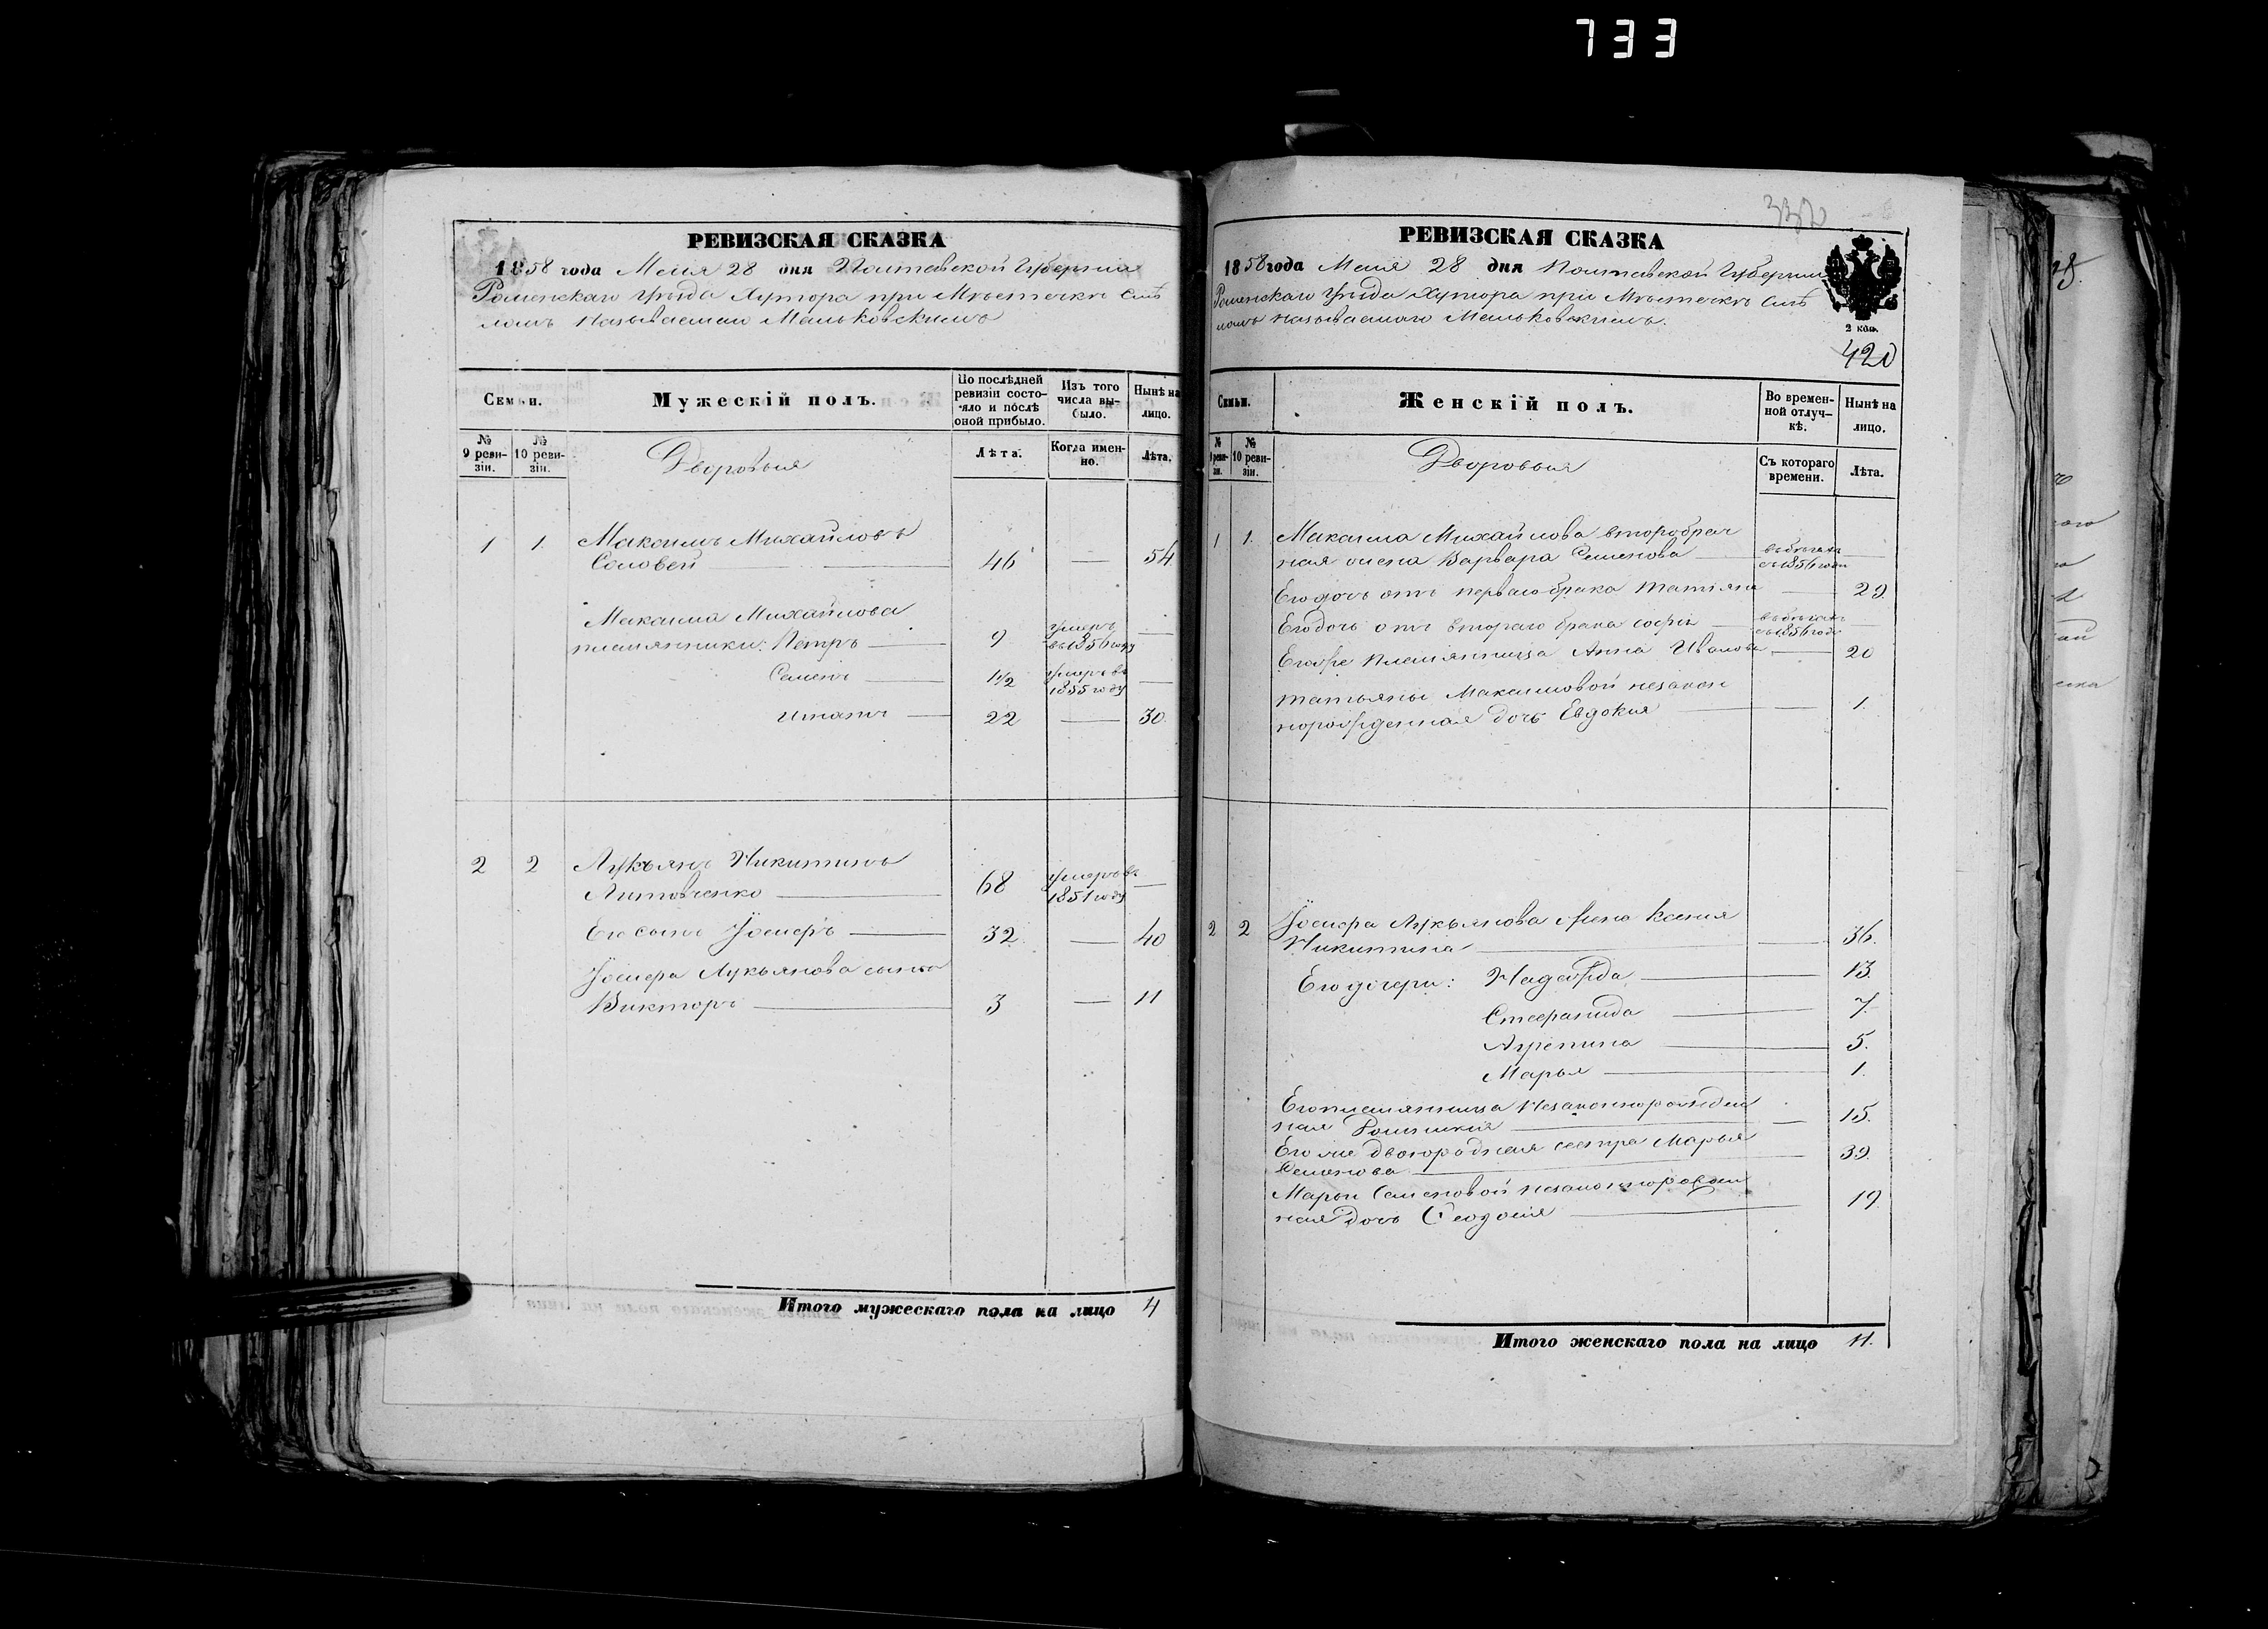 733
РЕВИЗСКАЯ СКАЗКА
1858 года Маія 28 дня Полтавской Губерніи
Роменскаго Уѣзда Хутора при Мѣстечкѣ Смѣ
ломъ называемаго Мальковскимъ
Семьи.
№ 9 ревизіи.
№ 10 ревизіи.
Мужескій полъ.
По послѣдней
ревизіи состо-
яло и послѣ
оной прибыло.
Изъ того
числа вы-
было.
Нынѣ на
лицо.
Лѣта.
Когда имен-
но.
Лѣта.
Дворовыя
1 1. Максимъ Михайловъ
Соловей 46 — 54.
Максима Михайлова
племянники: Петръ 9 умеръ въ 1856 году —
Семенъ 1½ умеръ въ 1855 году —
22 — 30.
2 2 Лукьянъ Никитинъ
Литовченко 68 умеръ въ 1851 году —
Его сынъ 32. — 40
Лукьянова сынъ
Викторъ 3 — 11
Итого мужескаго пола на лицо 4
332
РЕВИЗСКАЯ СКАЗКА
1858 года Маія 28 дня Полтавской Губерніи
Роменскаго Уѣзда Хутора при Мѣстечкѣ Смѣ
ломъ называемаго Мальковскимъ.
2 коп.
420
Семьи.
№ 9 ревизіи.
№ 10 ревизіи.
Женскій полъ.
Во времен-
ной отлуч-
кѣ.
Нынѣ на
лицо.
Съ котораго
времени.
Лѣта.
Дворовыя
1 1. Максима Михайлова второбрач
ная жена Варвара Семенова въ бѣгахъ съ 1856 года —
Его дочь отъ перваго брака Татіяна — 29.
Его дочь отъ втораго брака Софія въ бѣгахъ съ 1856 года —
Его же племянница Анна Иванова — 20
Татьяны Максимовой незакон
норожденная дочь Евдокія — 1.
2 2 Лукьянова жена Ксенія
Никитина — 36.
Его дочери: Надежда 13.
Стефанида 7.
Агрепина 5.
Марья 1.
Его племянница незаконнорожден
ная 15.
Его же двоюродная сестра Марья
Семенова 39.
Марьи Семеновой незаконнорожден
ная дочь Феодосія 19.
Итого женскаго пола на лицо 11.